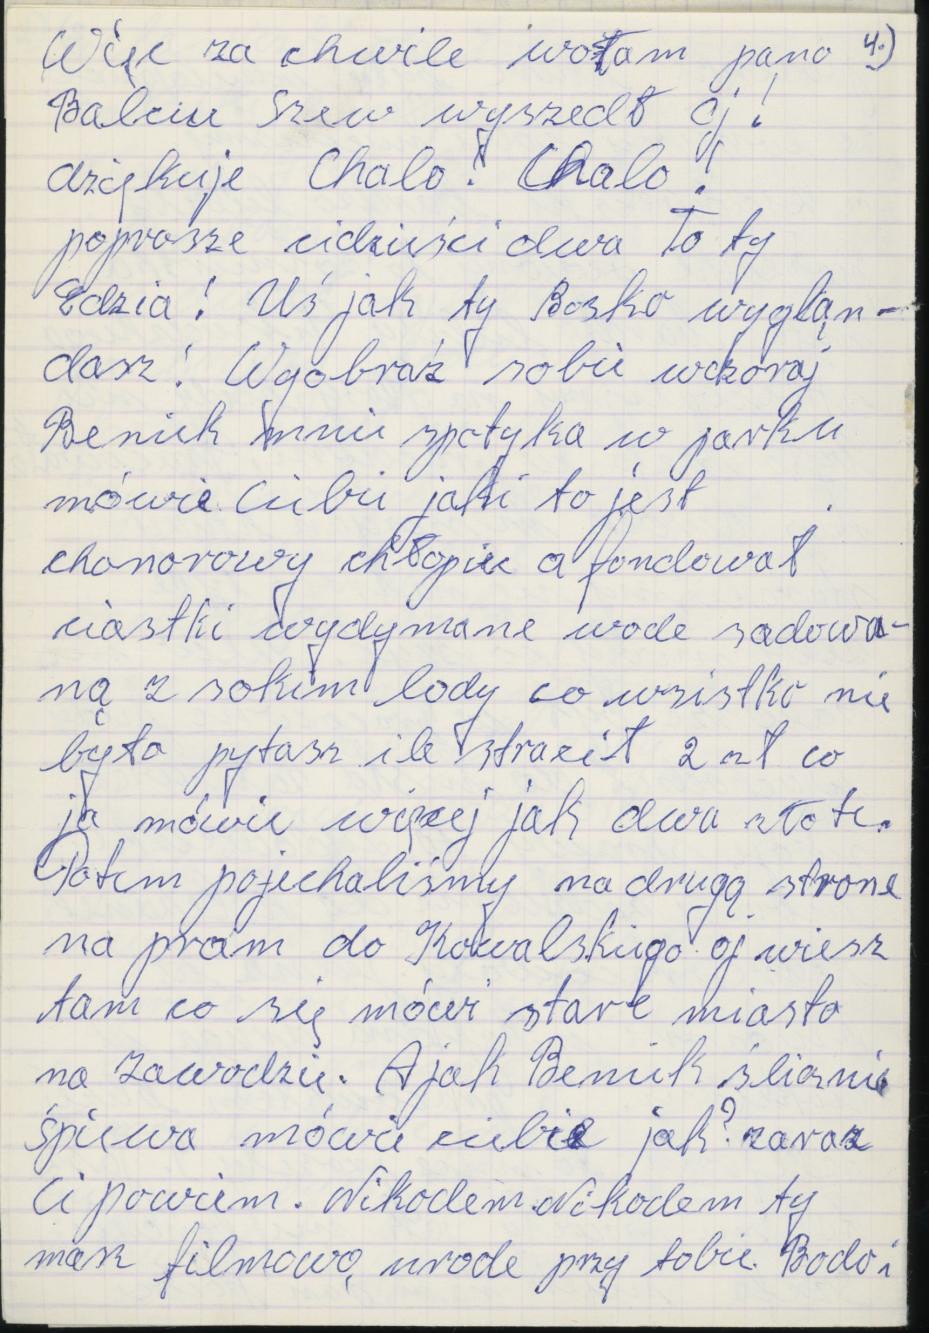 Więc za chwile wołam pana 4.)
Balciu Szew wyszedł oj!
dziękuje Chalo! Chalo!
poprosze cidzieści dwa To ty
Edzia! Uś jak ty Bosko wygląn-
dasz! Wyobraź sobie wczoraj
Beniek mnie spotyka w parku
mówie Ciebie jaki to jest
chonorowy chłopiec a fondował
ciastki wydymane wode sadowa-
ną z sokiem lody co wsistko nie
było pytasz ile stracił 2 zł co
ja mówie więcej jak dwa złote.
Potem pojechaliśmy na drugą strone
na pram do Kowalskiego oj wiesz
tam co się mówi stare miasto
na Zawodziu. A jak Beniek ślicznie
śpiewa mówie ciebie jak? zaraz
Ci powiem. Nikodem Nikodem ty
masz filmową urode przy tobie Bodo i